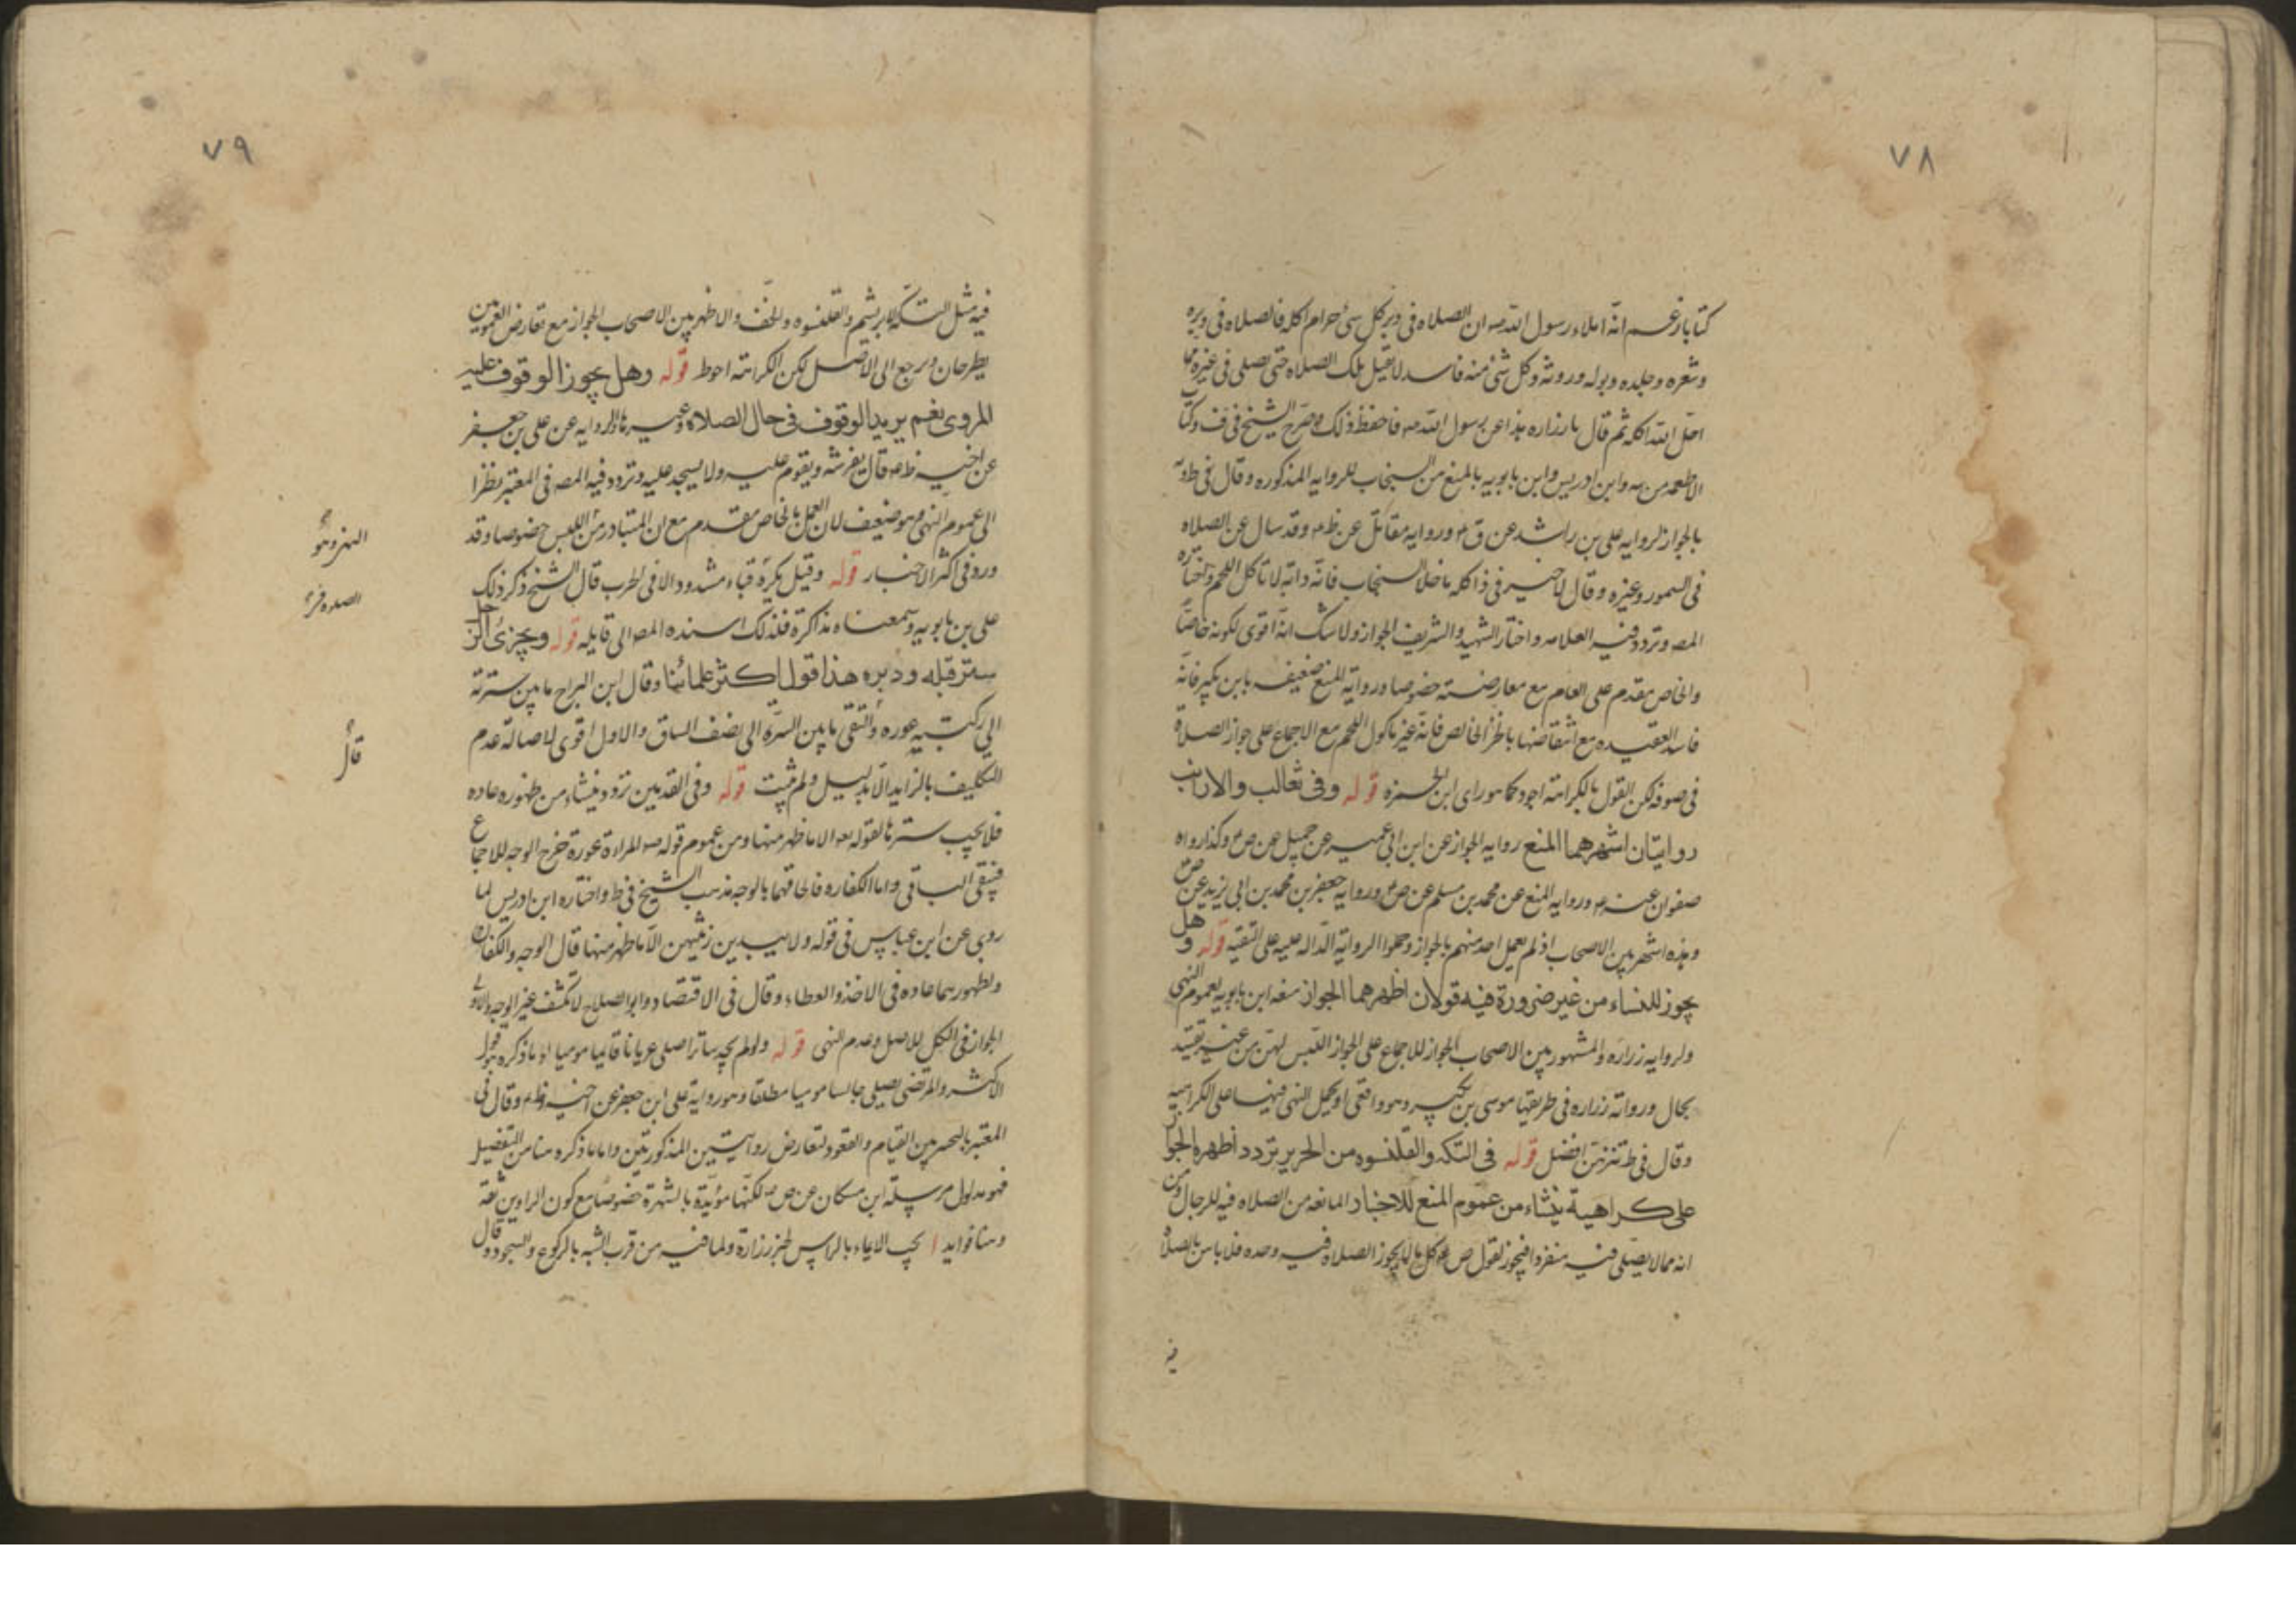 ٧٨
كتابا زعم انه املاء رسول الله صه ان الصلاه فى وبر كل شئ حرام اكله فالصلاه فى وبره
وشعره وجلده وبوله وروثه وكل شئ منه فاسد لا تقبل تلك الصلاه حتى يصلى فى غيره مما
احل الله اكله ثم قال يا زراره هذا عن رسول الله صه فاحفظ ذلك وصرح الشيخ فى ف وكتاب
الاطعمه من يه وابن ادريس وابن بابويه بالمنع من السنجاب للروايه المذكوره وقال فى ط ويه
بالجواز لروايه على بن راشد عن ق ع وروايه مقاتل عن ظم وقد سال عن الصلاه
فى السمور وغيره وقال لا خير فى ذا كله ما خلا السنجاب فانه دابه لا تاكل اللحم واختاره
المصه وتردد فيه العلامه واختار الشهيد والشريف الجواز ولا شك انه اقوى لكونه خاصا
والخاص مقدم على العام مع معارضته خصوصا وروايه المنع ضعيف بابن بكير فانه
فاسد العقيده مع انتقاضها بالخز الخالص فانه غير ماكول اللحم مع الاجماع على جواز الصلاة
فى صوفه لكن القول بالكراهة اجود كما هو راى ابن حمزه قوله وفى ثعالب والارانب
روايتان اشهرهما المنع روايه الجواز عن ابن ابى عمير عن جميل عن ص وكذا رواه
صفوان عنه ع وروايه المنع عن محمد بن مسلم عن ص وروايه جعفر بن محمد بن ابى يزيد عن ص
وهذه اشهر بين الاصحاب اذ لم يعمل احد منهم بالجواز وحملوا الرواية الداله عليه على التقيه قوله وهل
يجوز للنساء من غير ضرورة فيه قولان اظهرهما الجواز منعه ابن بابويه لعموم النهى
ولروايه زراره والمشهور بين الاصحاب الجواز للاجماع على الجواز اللبس لهن من غير تقييد
بحال وروايه زراره فى طريقها موسى بن بكير وهو واقفى او يحمل النهى فيها على الكراهيه
وقال فى ط تنزههن افضل قوله فى التكه والقلنسوه من الحرير تردد اظهره الجواز
على كراهية ينشاء من عموم المنع للاخبار المانعه من الصلاه فيه للرجال ومن
انه مما لا يصلى فيه منفردا فيجوز لقول ص ع كل ما لا يجوز الصلاه فيه وحده فلا باس بالصلاه
فيه
٧٩
فيه مثل التكه الابريشم والقلنسوه والخف والاظهر بين الاصحاب الجواز مع تعارض العمومين
يطرحان ويرجع الى الاصل لكن الكراهة احوط قوله وهل يجوز الوقوف عليه
المروى نعم يريد الوقوف فى حال الصلاة وغيرها والروايه عن على بن جعفر
عن اخيه ظم قال يفرشه ويقوم عليه ولا يسجد عليه وتردد فيه المصه فى المعتبر نظرا
الى عموم النهى وهو ضعيف لان العمل بالخاص مقدم مع ان المتبادر من اللبس خصوصا وقد
ورد فى اكثر الاخبار قوله وقيل يكره قباء مشدود الا فى الحرب قال الشيخ ذكر ذلك
على بن بابويه وسمعناه مذاكرة فلذلك اسنده المصه الى قايله قوله ويجزئ الرجل
ستر قبله ودبره هذا قول اكثر علمائنا وقال ابن البراج ما بين سرته
الى ركبتيه عوره والتقى ما بين السرة الى نصف الساق والاول اقوى لاصالة عدم
التكليف بالزايد الا بدليل ولم يثبت قوله وفى القدمين تردد ينشاء من ظهوره عاده
فلا يجب سترها لقوله تعه الا ما ظهر منها ومن عموم قوله صه المراءة عورة خرج الوجه للاجماع
فيبقى الباقى واما الكفاره فالحاقهما بالوجه مذهب الشيخ فى ط واختاره ابن ادريس لما
روى عن ابن عباس فى قوله ولا يبدين زينتهن الا ما ظهر منها قال الوجه والكفان
ولظهورهما عاده فى الاخذ والعطاء وقال فى الاقتصاد وابو الصلاح لا تكشف غير الوجه والاولى
الجواز فى الكل للاصل وعدم النهى قوله ولو لم يجد ساترا صلى عريانا قائما موميا اذ ما ذكره هو قول
الاكثر والمرتضى يصلى جالسا موميا مطلقا وهو رواية على ابن جعفر عن اخيه ظم وقال فى
المعتبر بالتخير بين القيام والقعود لتعارض روايتين المذكورتين واما ما ذكره هنا من التفصيل
فهو مدلول مرسلة ابن مسكان عن ص لكنها مؤيدة بالشهرة خصوصا مع كون الراوين ثقة
وهنا فوايد ا يجب الايماء بالراس لخبر زراره ولما فيه من قرب الشبه بالركوع والسجود وقال
قال